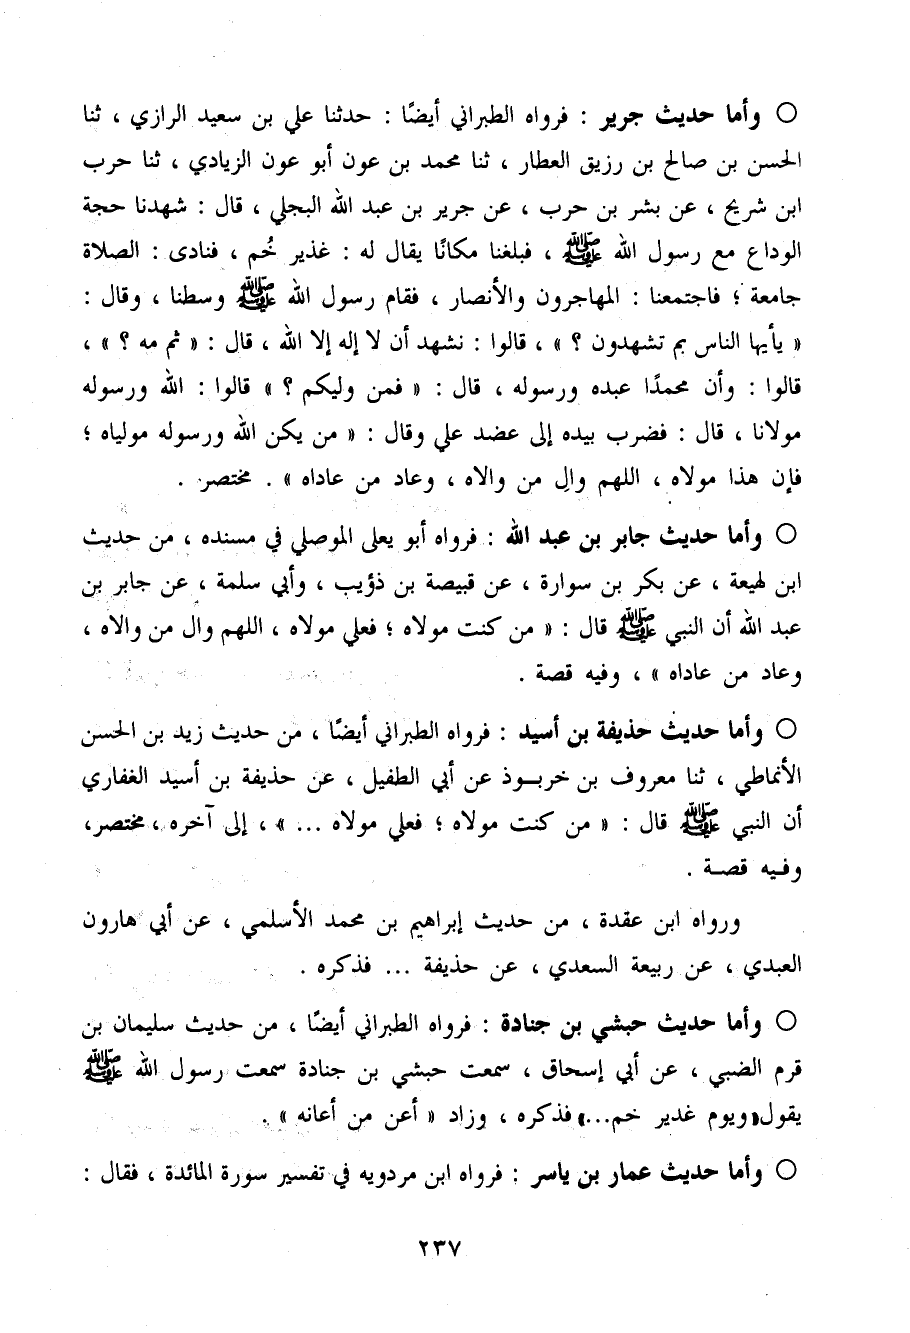 ○ وأما حديث جرير : فرواه الطبراني أيضًا : حدثنا علي بن سعيد الرازي ، ثنا
الحسن بن صالح بن رزيق العطار ، ثنا محمد بن عون أبو عون الزيادي ، ثنا حرب
ابن شريح ، عن بشر بن حرب ، عن جرير بن عبد الله البجلي ، قال : شهدنا حجة
الوداع مع رسول الله ﷺ ، فبلغنا مكانًا يقال له : غذير خُم ، فنادى : الصلاة
جامعة ؛ فاجتمعنا : المهاجرون والأنصار ، فقام رسول الله ﷺ وسطنا ، وقال :
« يأيها الناس بم تشهدون ؟ » ، قالوا : نشهد أن لا إله إلا الله ، قال : « ثم مه ؟ » ،
قالوا : وأن محمدًا عبده ورسوله ، قال : « فمن وليكم ؟ » قالوا : الله ورسوله
مولانا ، قال : فضرب بيده إلى عضد علي وقال : « من يكن الله ورسوله مولياه ؛
فإن هذا مولاه ، اللهم والِ من والاه ، وعاد من عاداه » . مختصر .
○ وأما حديث جابر بن عبد الله : فرواه أبو يعلى الموصلي في مسنده ، من حديث
ابن لهيعة ، عن بكر بن سوارة ، عن قبيصة بن ذؤيب ، وأبي سلمة ، عن جابر بن
عبد الله أن النبي ﷺ قال : « من كنت مولاه ؛ فعلي مولاه ، اللهم وال من والاه ،
وعاد من عاداه » ، وفيه قصة .
○ وأما حديث حذيفة بن أسيد : فرواه الطبراني أيضًا ، من حديث زيد بن الحسن
الأنماطي ، ثنا معروف بن خربـوذ عن أبي الطفيل ، عن حذيفة بن أسيد الغفاري
أن النبي ﷺ قال : « من كنت مولاه ؛ فعلي مولاه ... » ، إلى آخره ، مختصر،
وفـيه قصـة .
ورواه ابن عقدة ، من حديث إبراهيم بن محمد الأسلمي ، عن أبي هارون
العبدي ، عن ربيعة السعدي ، عن حذيفة ... فذكره .
○ وأما حديث حبشي بن جنادة : فرواه الطبراني أيضًا ، من حديث سليمان بن
قرم الضبي ، عن أبي إسحاق ، سمعت حبشي بن جنادة سمعت رسول الله ﷺ
يقول«ويوم غدير خم...» فذكره ، وزاد « أعن من أعانه » .
○ وأما حديث عمار بن ياسر : فرواه ابن مردويه في تفسير سورة المائدة ، فقال :
٢٣٧